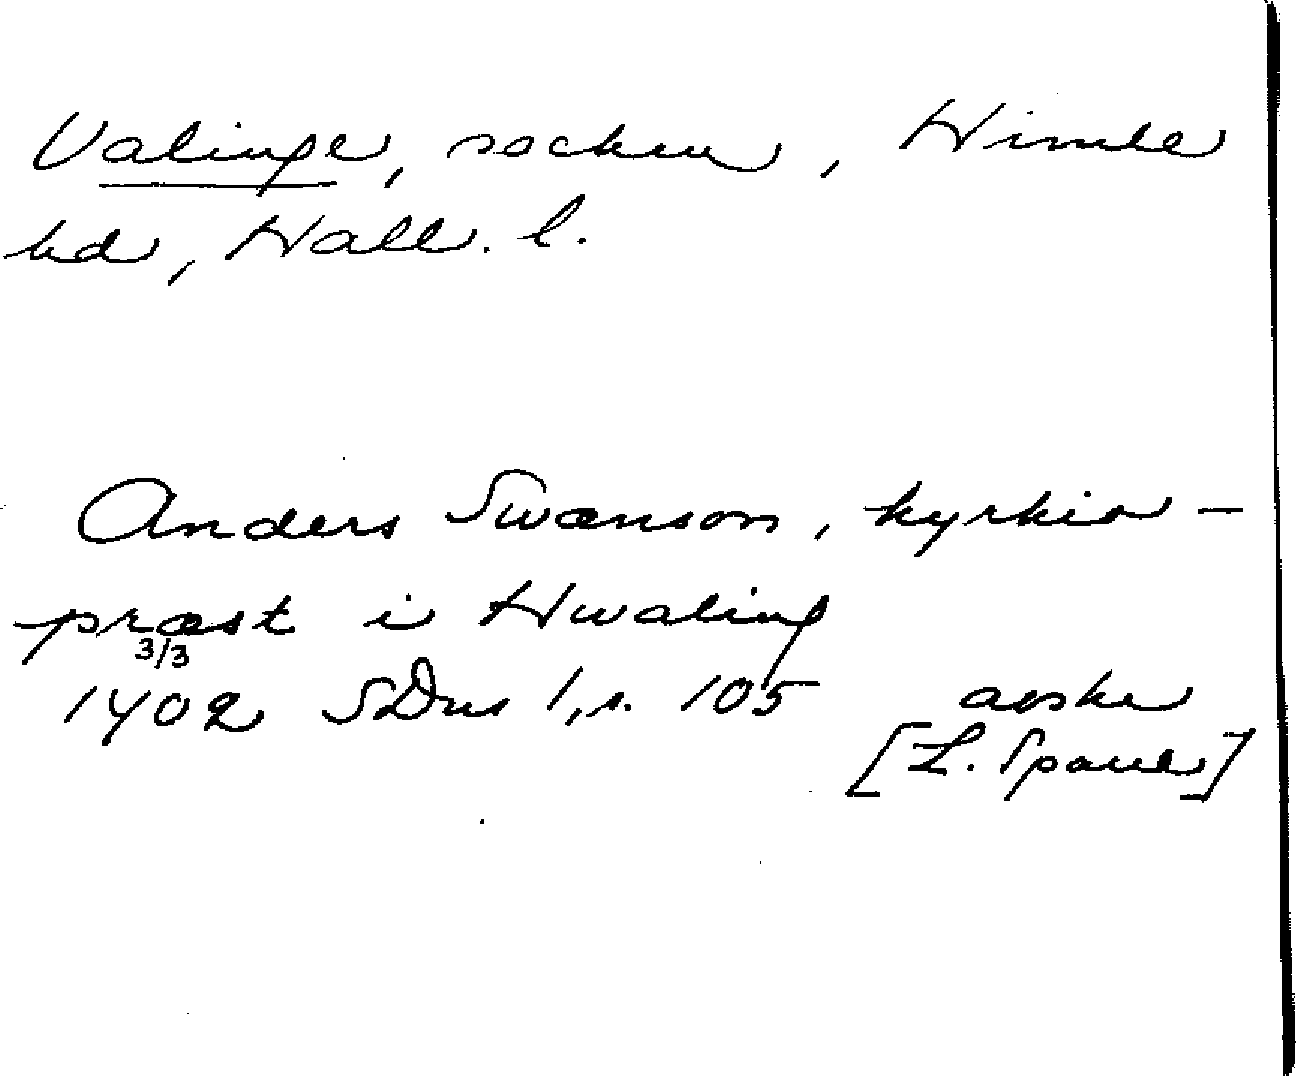 Valinge, socken, Himle
hd, Hall. l.
Anders Swænson, kyrkio-
præst i Hwaling
3/3
1402 SDns 1, s. 105 avskr
[L. Sparre]